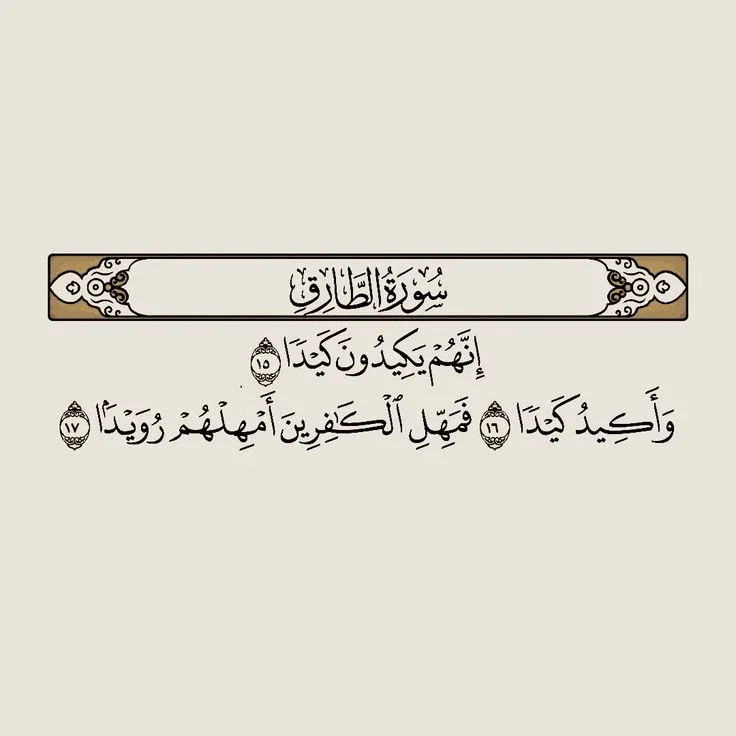 سُورَةُ الطَّارِقِ
إِنَّهُمْ يَكِيدُونَ كَيْدًا ١٥
وَأَكِيدُ كَيْدًا ١٦ فَمَهِّلِ ٱلْكَـٰفِرِينَ أَمْهِلْهُمْ رُوَيْدًۢا ١٧